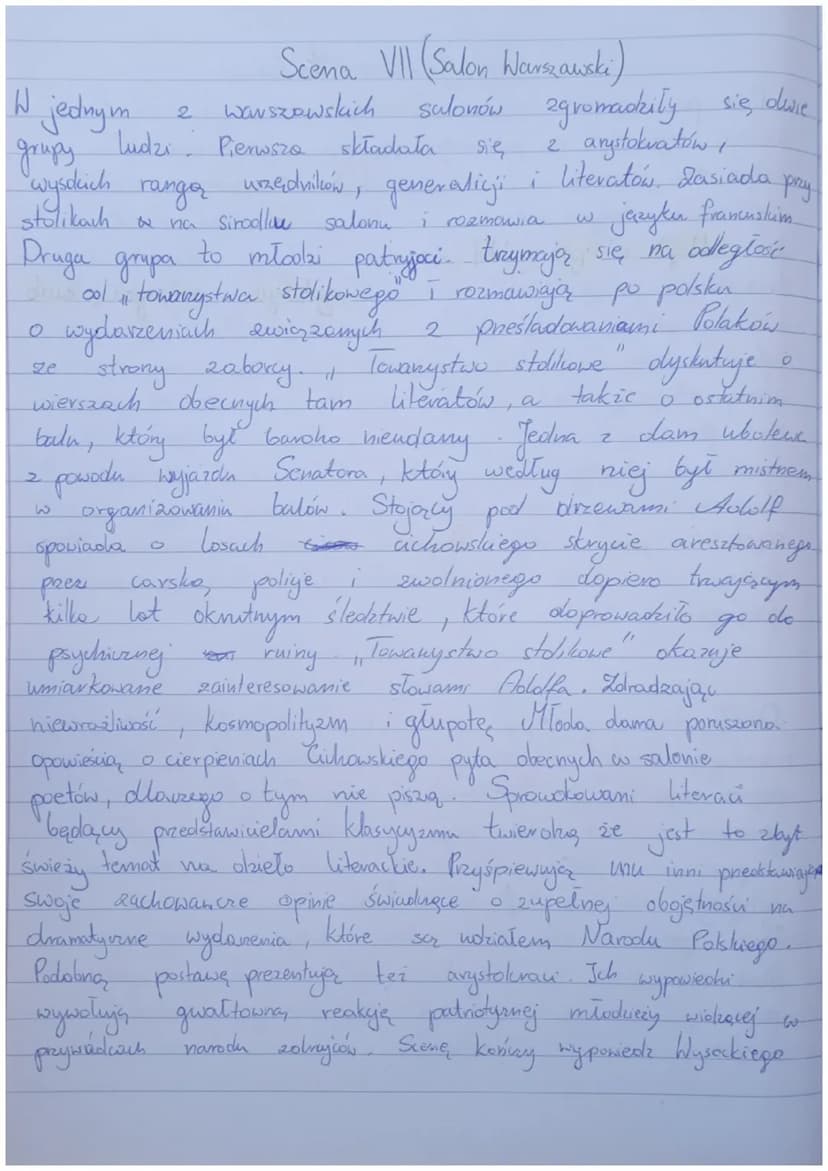 Scena VII (Salon Warszawski)
W jednym z warszawskich salonów zgromadziły się dwie
grupy ludzi. Pierwsza składała się z arystokratów,
wysokich rangą urzędników, generalicji i literatów. Zasiada przy
stolikach na środku salonu i rozmawia w języku francuskim
Druga grupa to młodzi patryjoci. trzymają się na odległość
od "towarzystwa stolikowego" i rozmawiają po polsku
o wydarzeniach związanych z prześladowaniami Polaków
ze strony zaborcy. "Towarzystwo stolikowe" dyskutuje o
wierszach obecnych tam literatów, a także o ostatnim
balu, który był bardzo nieudany. Jedna z dam ubolewa
z powodu wyjazdu Senatora, który według niej był mistrzem
w organizowaniu balów. Stojący pod drzewami Adolf
opowiada o losach cichowskiego skrycie aresztowanego
przez carską policje i zwolnionego dopiero trwającym
kilka lat okrutnym śledztwie, które doprowadziło go do
psychicznej ruiny. "Towarzystwo stolikowe" okazuje
umiarkowane zainteresowanie słowami Adolfa. Zdradzając
niewrażliwość, kosmopolityzm i głupotę. Młoda dama poruszona
opowieścią o cierpieniach Cichowskiego pyta obecnych w salonie
poetów, dlaczego o tym nie piszą. Sprowokowani literaci
będący przedstawicielami klasycyzmu twierdzą że jest to zbyt
świeży temat na dzieło literackie. Przyśpiewując mu inni przedstawiają
swoje zachowawcze opinie świadczące o zupełnej obojętności na
dramatyczne wydarzenia, które są udziałem Narodu Polskiego.
Podobną postawę prezentują też arystokraci. Ich wypowiedzi
wywołują gwałtowną reakcję patriotycznej młodzieży widzącej w
przywódcach narodu zdrajców. Scenę kończy wypowiedź Wysockiego